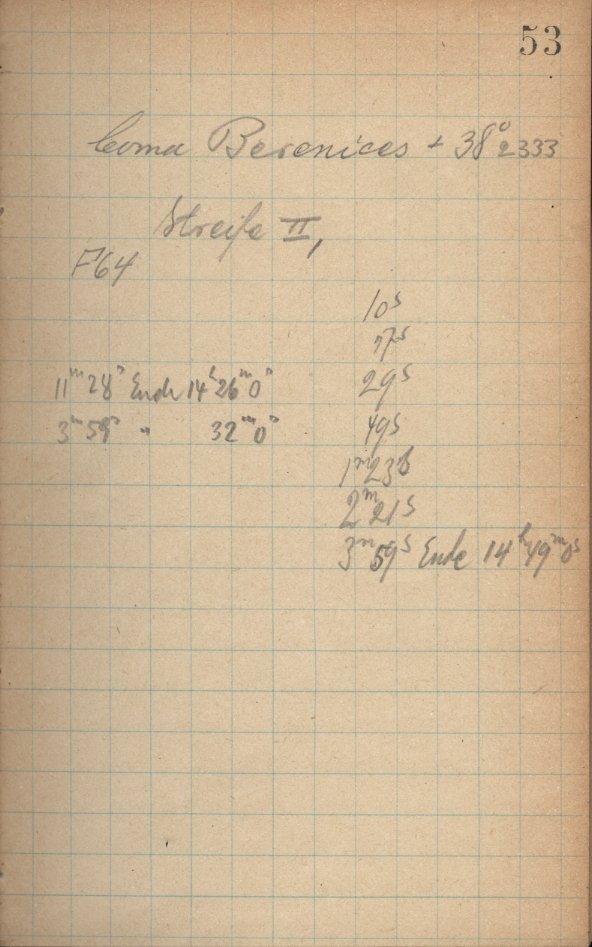 53
Coma Berenices + 38° 2333
Streife II,
F64
10s
17s
11m 28s Ende 14h 26m 0s
29s
3m 59s " 32m 0s
49s
1m 23s
2m 21s
3m 59s Ende 14h 49m 0s